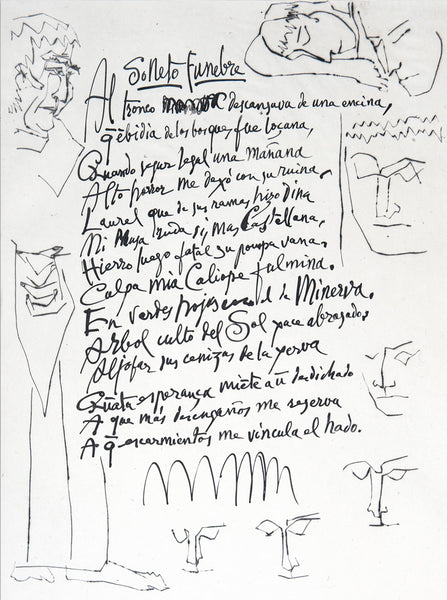 Soneto Funebre
Al tronco descansava de una encina,
q̄ ēbidia de los bosques fue loçana,
Quando segur legal una mañana
Alto horror me dexó con su ruina.
Laurel que de sus ramas hizo dina
Mi Musa ruda si, mas Castellana,
Hierro luego fatal su pompa vana.
Culpa mia Caliope fulmina.
En verdes hojas cano el de Minerva.
Arbol culto del Sol yace abrasado.
Aljofar sus cenizas de la yerva
Quāta esperança miēte a ū desdichado
A que más desengaños me reserva
A q̄ escarmientos me vincula el hado.